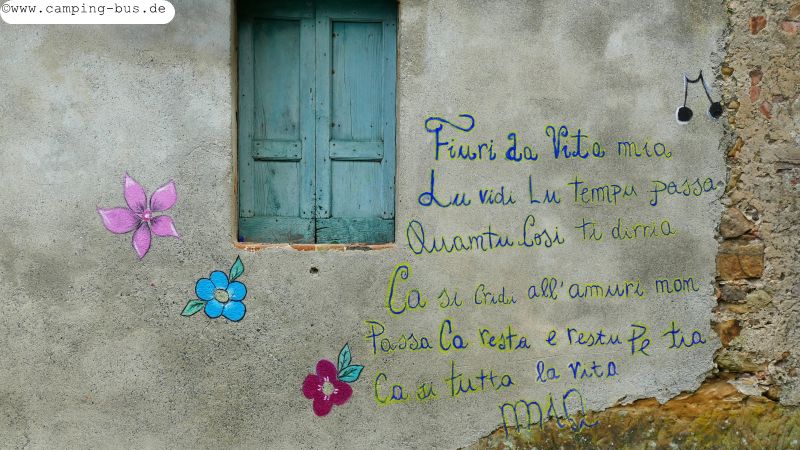 ©www.camping-bus.de
Fiuri da Vita mia
Lu vidi Lu tempu passa
Quamtu Cosi ti dirria
Ca si cridi all'amuri mon
Passa Ca resta e restu Pe tia
Ca si tutta la vita
mia